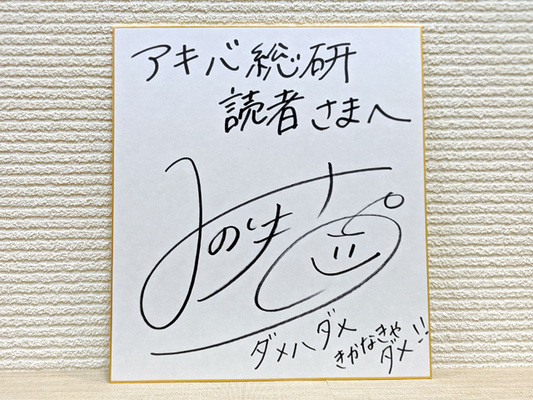 アキバ総研
読者さまへ
ダメハダメ
きかなきゃ
ダメ!!